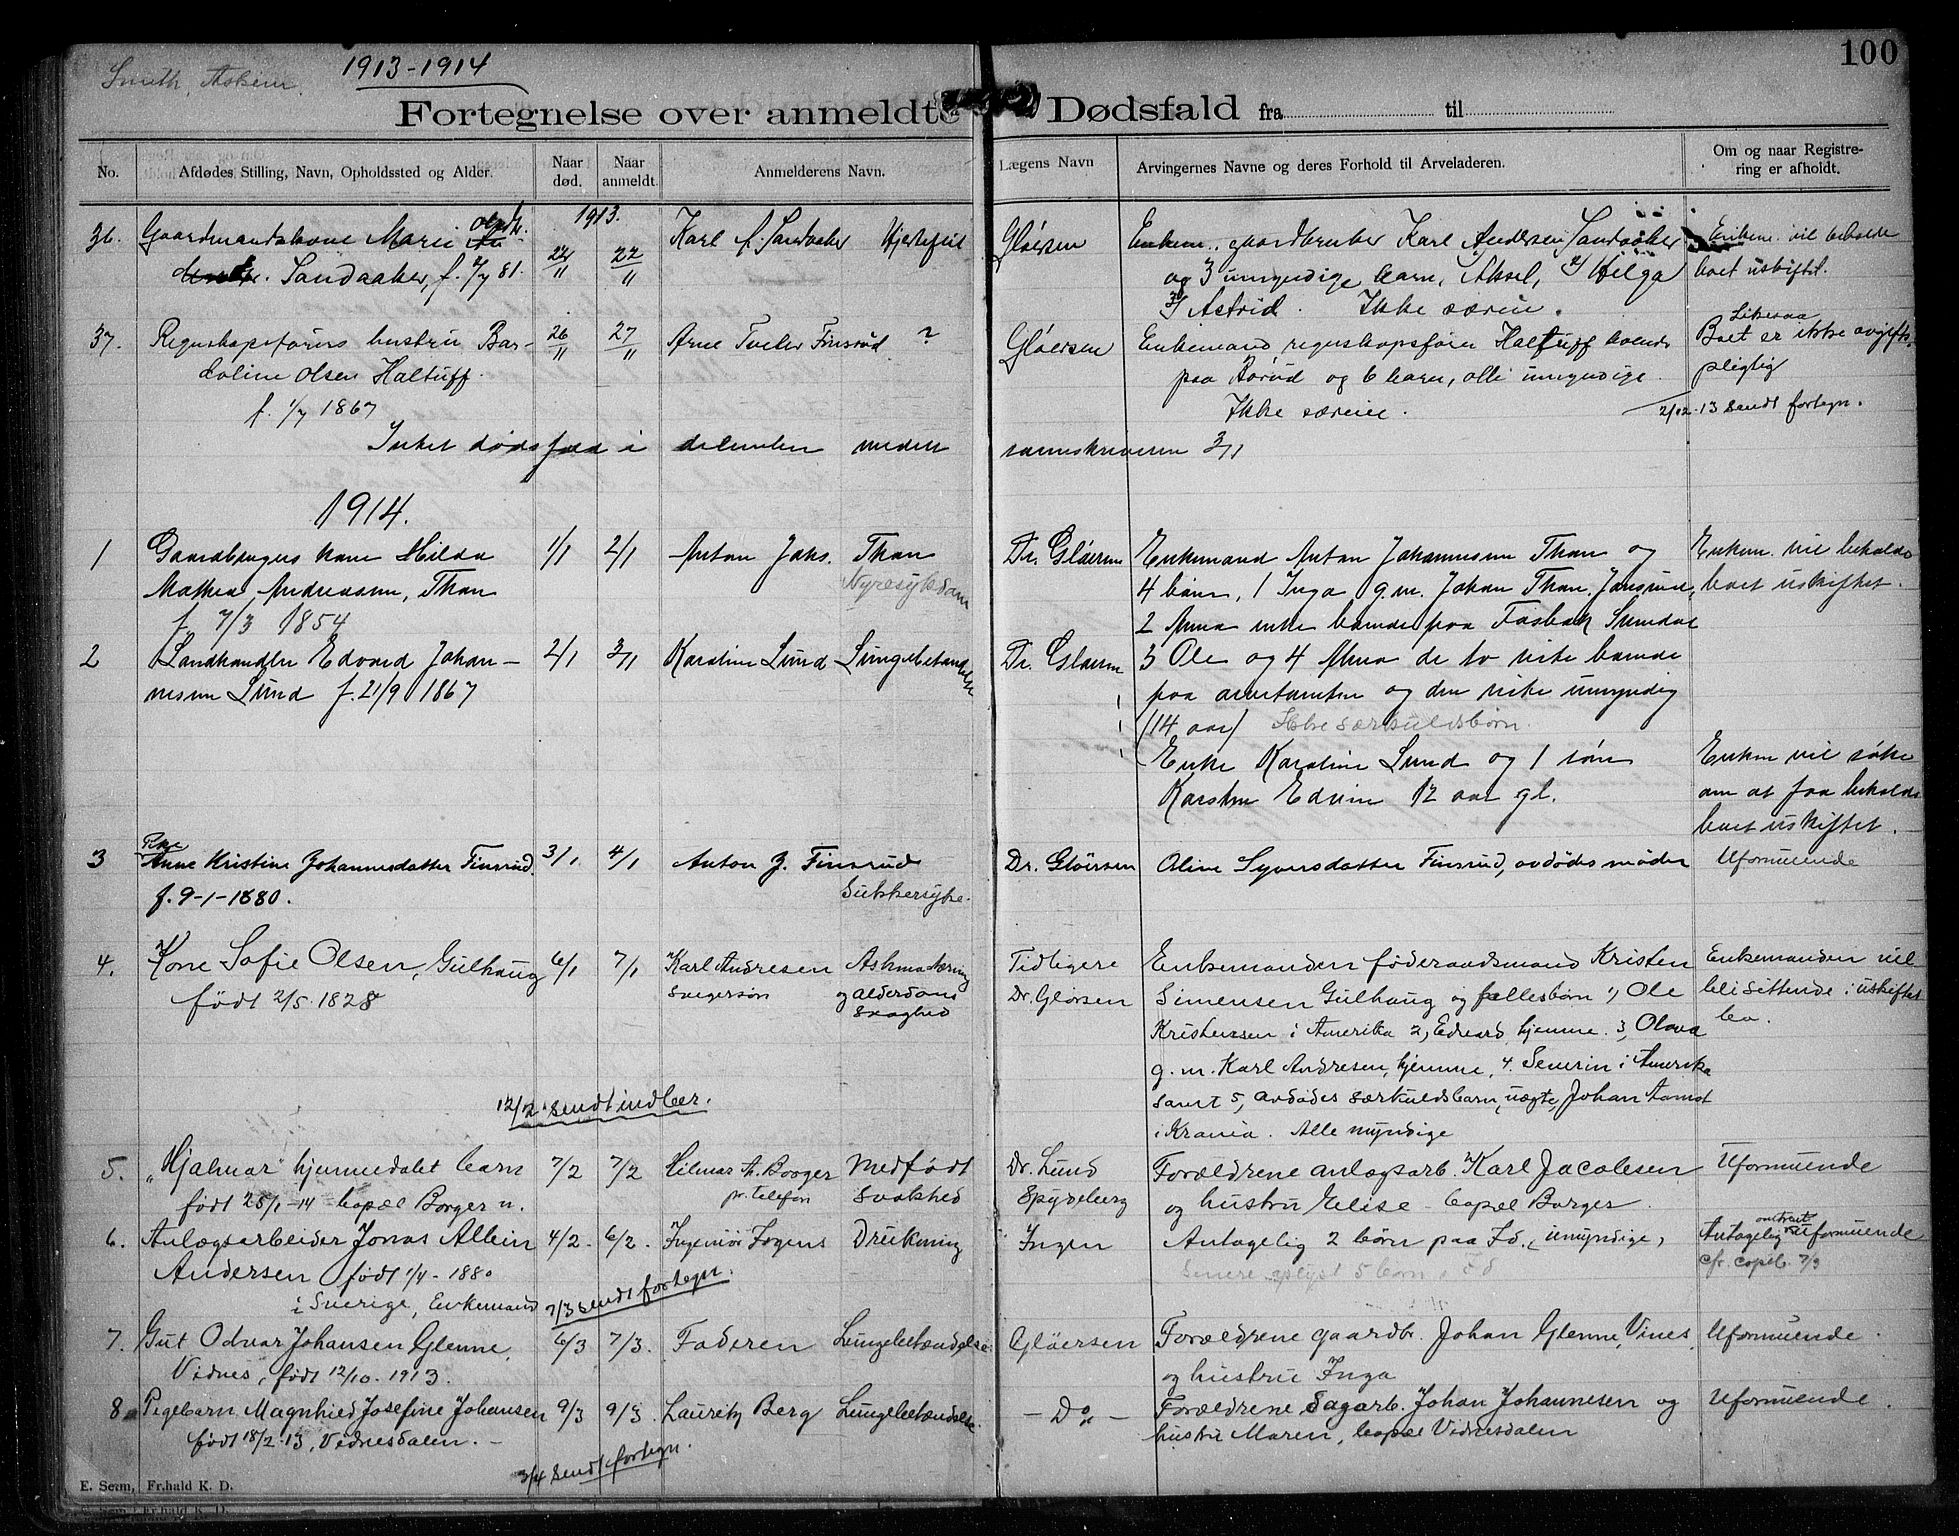 Smith, Askim.
1913-1914
100
Fortegnelse over anmeldte Dødsfald fra til
No.
Afdødes Stilling, Navn, Opholdssted og Alder.
Naar død.
Naar anmeldt.
Anmelderens Navn.
Lægens Navn
Arvingernes Navne og deres Forhold til Arveladeren.
Om og naar Registrering er afholdt.
1913.
36. Gaardmandskone Marie Olsdtr.
Sandaaker, f. 2/7 81.
22/11
Karl A. Sandaaker Hjertefeil
Gløersen
Enkem., gaardbruker Karl Andersen Sandaaker
og 3 umyndige barn, Aksel, 2) Helga
3) Astrid. Ikke særeie.
Enkem. vil beholde
boet uskiftet.
37. Regnskapsførers hustru Bar-
oline Olsen Haltuff.
f. 1/7 1867
26/11 27/11
Arne Tveter Finsrud ?
Gløersen
Enkemand regnskapsfører Haltuff boende
paa Korud og 6 barn, alle umyndige.
Ikke særeie.
Likesaa
Boet er ikke avgifts-
pligtig
2/12-13 sendt fortegn.
Intet dødsfald i desember meldt
sorenskriveren 3/1
1914.
1 Gaardbrugers kone Hilda
Mathea Andreassen, Than
f 7/3 1854
1/1 2/1
Anton Johs. Than
Nyresykdom
Dr. Gløersen
Enkemand Anton Johannesen Than og
4 børn, 1 Inga g.m. Johan Than
2 Anna ikke boende paa
3 Ole og 4 Anna de to siste boende
paa arvetomten og den siste umyndig
(14 aar) Ikke særkuldsbørn.
Enkem. vil beholde
boet uskiftet.
2 Landhandler Edvard Johan-
nesen Lund f. 21/9 1867
2/1 3/1
Karoline Lund Lungebetændelse
Dr. Gløersen
Enke Karoline Lund og 1 søn
Karsten Edvin 12 aar gl.
Enken vil søke
om at faa beholde
boet uskiftet.
3 Pike
Anne Kristine Johannesdatter Finsrud.
f. 9-1-1880.
3/1 4/1
Anton J. Finsrud
Sukkersyke.
Dr. Gløersen
Oline Syversdatter Finsrud, avdødes moder
Uformuende
4. Kone Sofie Olsen, Gulhaug
født 2/5. 1828
6/1 7/1
Karl Andresen
Svigersøn
og Alderdoms
svaghed
Tidligere
Dr. Gløersen
Enkemanden føderaadsmand Kristen
Simensen Gulhaug og fællesbørn 1, Ole
Kristensen i Amerika 2, Edvard, hjemme. 3, Olava
g. m. Karl Andresen, hjemme, 4. Severin i Amerika
samt 5, avdødes særkuldsbarn, uægte, Johan
i Krania. Alle myndige
Enkemanden vil
bli sittende i uskiftet
bo.
12/2 sendt indber.
5. "Hjalmar" hjemmedøbt barn
født 25/1-14 - Copæl Borger n.
7/2 7/2
Hilmar A. Borger
pr. telefon
Medfødt
Svakhed
Dr. Lund
Spydeberg
Forældrene anlægsarb. Karl Jacobsen
og hustru Elise - Copæl Borger.
Uformuende
6. Anlægsarbeider Jonas Albin
Andersen født 1/4-1880
i Sverige, Enkemand
4/2 - 6/2.
Drukning
Ingen
Antagelig 2 børn paa Fd., umyndige,
Senere oplyst 5 børn
Antagelig uformuende
7/3 sendt fortegn.
7. Gut Odvar Johansen Glenne,
Vidnes, født 12/10. 1913.
6/3 7/3.
Faderen Lungebetændelse.
Gløersen
Forældrene gaardbr. Johan Glenne, Vines
og hustru Inga
Uformuende.
8. Pigebarn Magnhild Josefine Johansen
født 18/2-13, Vidnesdalen. -
9/3 9/3
Lauritz Berg Lungebetændelse.
- Do -
Forældrene Sagarb. Johan Johannesen og
hustru Maren, Copæl Vidnesdalen
Uformuende.
3/4 sendt fortegn.
E. Sem, Fr.hald K. D.